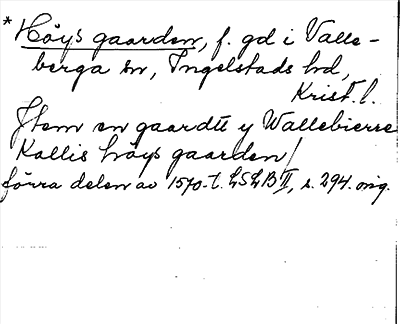 * Höys gaarden, f. gd i Valle-
berga sn, Ingelstads hd,
Krist. l.
Jtem en gaardtt y Wallebierre
Kallis höys gaarden/
förra delen av 1570-t. LSLB II, s. 294. orig.